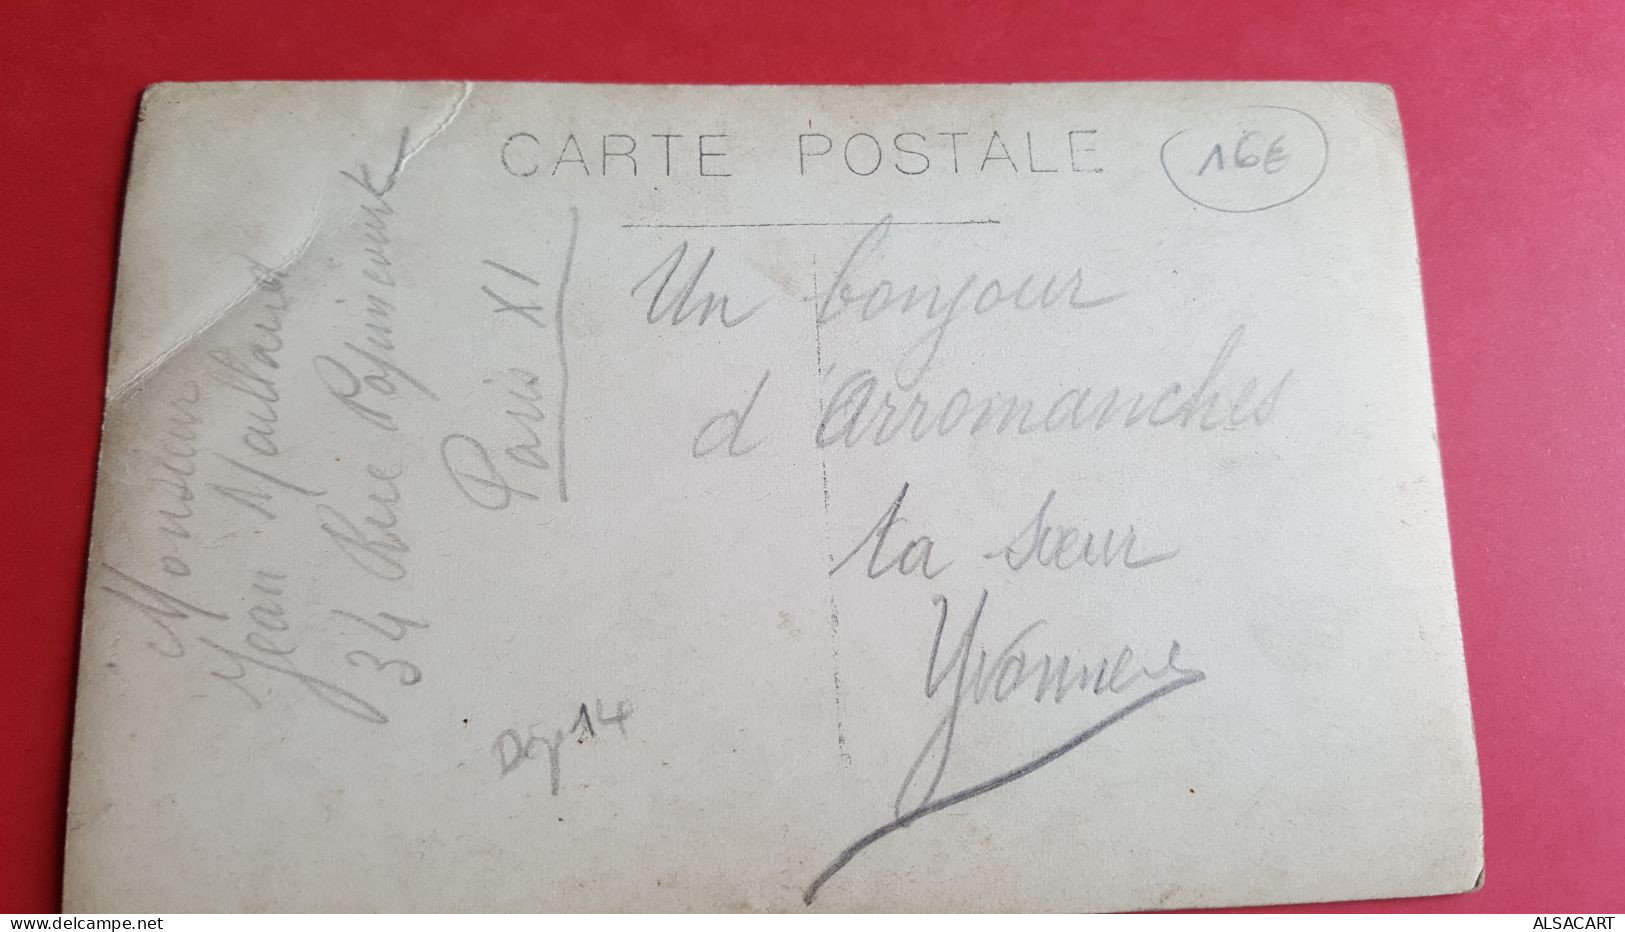 CARTE POSTALE
16€
Un bonjour
d'Arromanches
ta sœur
Yvonne
Monsieur
Jean Maillard
34 Rue Popincourt
Paris XI
Dep 14
www.delcampe.net
ALSACART